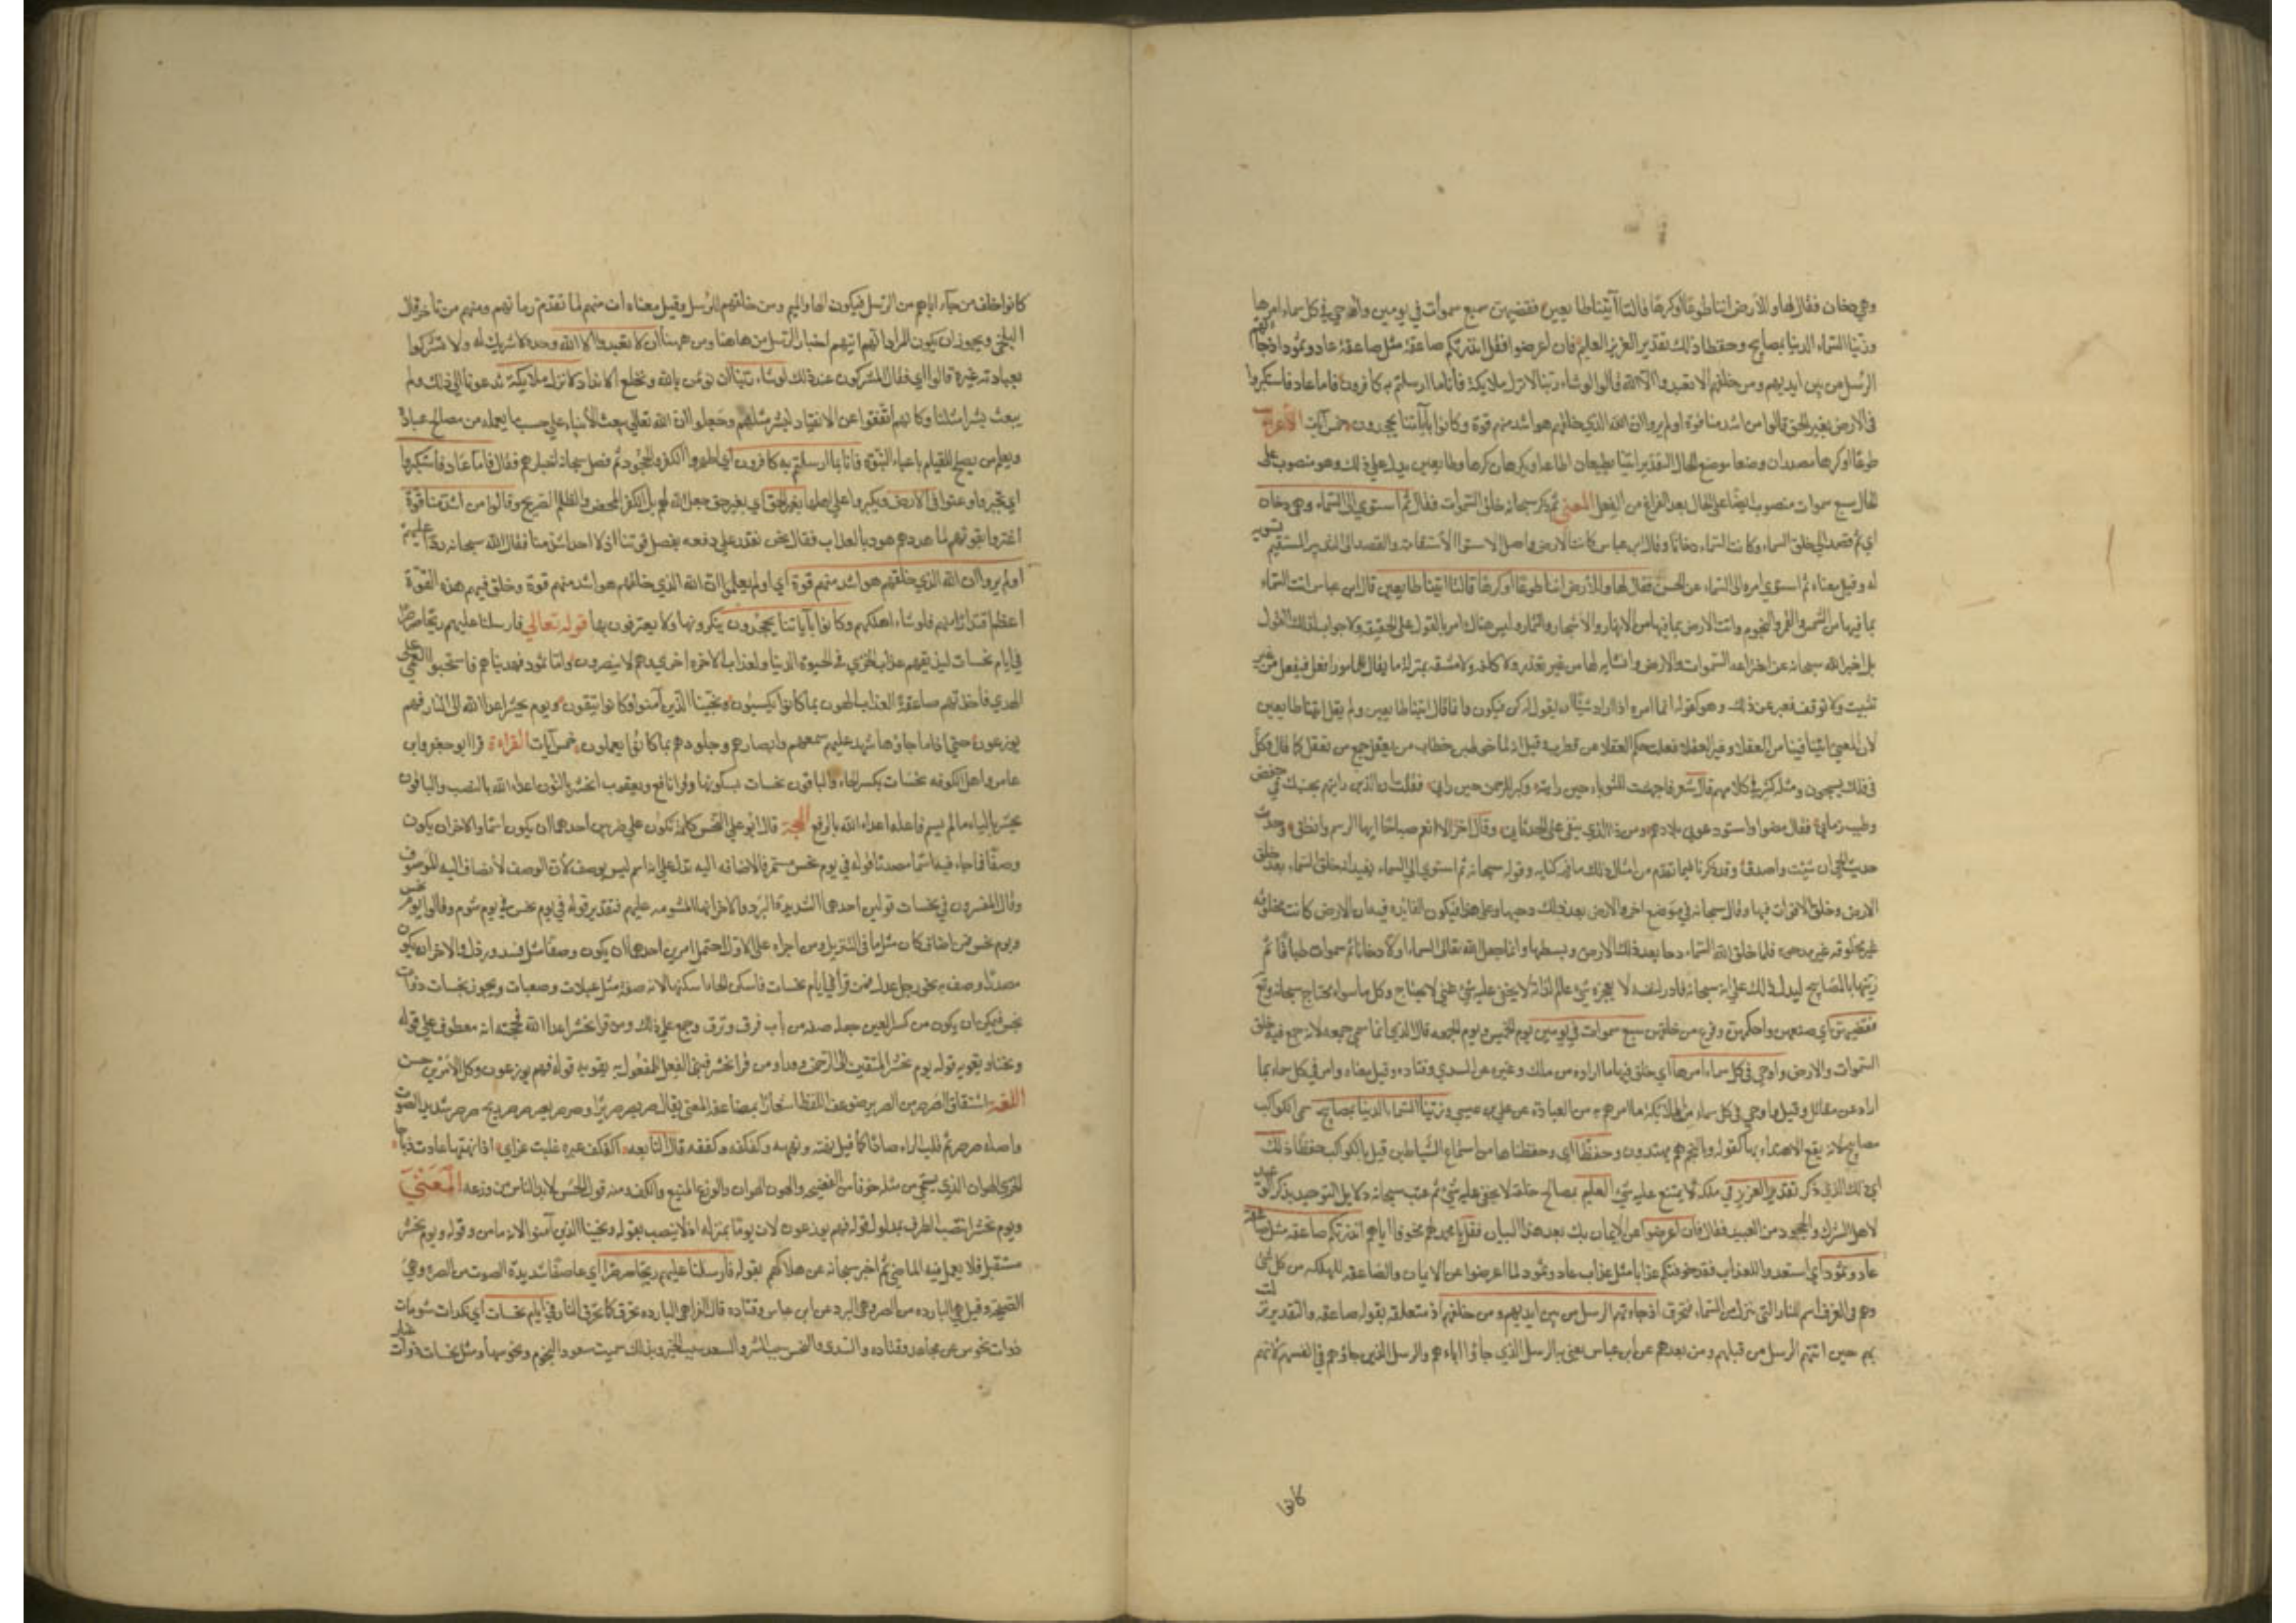 وهي دخان فقال لها وللارض ائتيا طوعا اوكرها قالتا آتينا طايعين فقضيهن سبع سموات في يومين واوحي في كل سماء امرها
وزينا السماء الدنيا بمصابيح وحفظا ذلك تقدير العزيز العليم فان اعرضوا فقل انذرتكم صاعقة مثل صاعقة عاد وثمود اذ جاءتهم
الرسل من بين ايديهم ومن خلفهم الا تعبدوا الا الله قالوا لو شاء ربنا لانزل ملايكة فانا بما ارسلتم به كافرون فاما عاد فاستكبروا
في الارض بغير الحق وقالوا من اشد منا قوة اولم يروا ان الله الذي خلقهم هو اشد منهم قوة وكانوا بآياتنا يجحدون خمس آيات الاعراب
طوعا اوكرها مصدران وضعا موضع الحال التقدير ائتيا تطيعان اطاعة او تكرهان كرها وطايعين يدل علي ذلك وهو منصوب على
الحال سبع سموات منصوب ايضا علي الحال بعد الفراغ من الفعل المعني ثم ذكر سبحانه خلق السموات فقال ثم استوي الي السماء وهي دخان
اي ثم قصد الي خلق السماء وكانت السماء دخانا وقال ابن عباس كانت الارض واصل الاستوا الاستقامة والقصد الي التدبير المستقيم تسوية
له وقيل معناه ثم استوي امره الى السماء عن الحسن فقال لها وللارض ائتيا طوعا اوكرها قالتا اتينا طايعين قال ابن عباس اتت السماء
بما فيها من الشمس والقمر والنجوم واتت الارض بما فيها من الانهار والاشجار والثمار وليس هناك امر بالقول على الحقيقة ولا جواب لذلك القول
بل اخبر الله سبحانه عن اختراعه السموات والارض وانشايه لهما من غير تعذر ولا كلفة ولا مشقة بمنزلة ما يقال للمامور افعل فيفعل من غير
تثبيت ولا توقف فعبر عن ذلك وهو كقوله انما امره اذا اراد شيئا ان يقول له كن فيكون وانما قال اتينا طايعين ولم يقل اتيتا طايعين
لان المعني اتينا بمن فينا من العقلاء وغير العقلاء فغلب حكم العقلاء عن قطرب وقيل انه لما خوطبن خطاب من يعقل جمع من يعقل كما قال وكل
في فلك يسبحون ومثله كثير في كلامهم قال شعر فاجهشت للتوباد حين رايته وكبر للرحمن حين راني فقلت له اين الذين رايتهم بجنبك في خفض
وطيب زمان فقال مضوا واستودعوني بلادهم ومن ذا الذي يبقى على الحدثان وقال اخر الا انعم صباحا ايها الرسم وانطق وحدث
حديث الحي ان شيت واصدق وقد ذكرنا فيما تقدم من امثال ذلك ما فيه كفاية وقوله سبحانه ثم استوي الي السماء يفيد انه خلق السماء بعد خلق
الارض وخلق الاقوات فيها وقال سبحانه في موضع اخر والارض بعد ذلك دحيها وعلى هذا فيكون الفايدة فيه ان الارض كانت مخلوقة
غير مدحوة فلما خلق الله السماء دحا بعد ذلك الارض وبسطها وانما جعل الله تعالى السماء اولا دخانا ثم سموات طباقا ثم
زينها بالمصابيح ليدل ذلك على انه سبحانه قادر لنفسه لا يعجزه شي عالم لذاته لا يخفى عليه شي غني لا يحتاج وكل ما سواه محتاج اليه سبحانه
فقضيهن اي صنعهن واحكمهن وفرغ من خلقهن سبع سموات في يومين يوم الخميس ويوم الجمعة قال السدي انما سمي جمعة لانه جمع فيه خلق
السموات والارض واوحي في كل سماء امرها اي خلق فيها ما اراده من ملك وغيره عن السدي وقتادة وقيل معناه وامر في كل سماء بما
اراد عن مقاتل وقيل واوحي في كل سماء من الملايكة ما امرهم به من العبادة عن علي بن عيسى وزينا السماء الدنيا بمصابيح سمي الكواكب
مصابيح لانه يقع الاهتداء بها كقوله وبالنجم هم يهتدون وحفظا اي وحفظناها من استماع الشياطين قيل بالكواكب حفظا ذلك
اي ذلك الذي ذكر تقدير العزيز في ملكه لا يمتنع عليه شي العليم بمصالح خلقه لا يخفى عليه شي ثم عقب سبحانه دلايل التوحيد بذكر الوعيد
لاهل الشرك والجحود من العبيد فقال فان اعرضوا عن الايمان بك بعد هذا البيان فقل يا محمد لهم مخوفا اياهم انذرتكم صاعقة مثل صاعقة
عاد وثمود اي استعدوا للعذاب فقد خوفتكم عذابا مثل عذاب عاد وثمود لما اعرضوا عن الايمان والصاعقة المهلكة من كل شي
وهي في العرف اسم للنار التي تنزل من السماء فتحرق اذ جاءتهم الرسل من بين ايديهم ومن خلفهم اذ متعلقة بقوله صاعقة والتقدير نزلت
بهم حين اتتهم الرسل من قبلهم ومن بعدهم عن ابن عباس يعني به الرسل الذي جاؤا اباءهم والرسل الذين جاؤهم في انفسهم لانهم
كانوا
كانوا خلف من جاء اباءهم من الرسل فيكون الهاء والميم ومن خلفهم للرسل وقيل معناه ان منهم لما تقدم زمانهم ومنهم من تاخر قال
البلخي ويجوز ان يكون المراد اتاهم اتيهم اخبار الرسل من هاهنا ومن ههنا ان لا تعبدوا الا الله وحده لا شريك له ولا تشركوا
بعبادته غيره قالوا اي فقال المشركون عند ذلك لو شاء ربنا ان نؤمن بالله ونخلع الانداد لانزل ملايكة تدعونا الي ذلك ولم
يبعث بشرا مثلنا وكانهم انفوا عن الانقياد لبشر مثلهم وجهلوا ان الله تعالي يبعث الانبياء علي حسب ما يعلمه من مصالح عباده
ويعلم من يصلح للقيام باعباء النبوة فانا بما ارسلتم به كافرون اي اظهروا الكفر والجحود ثم فصل سبحانه اخبارهم فقال فاما عاد فاستكبروا
اي تجبروا وعتوا في الارض وتكبروا علي اهلها بغير الحق اي بغير حق جعله الله لهم بل للكفر المحض والظلم الصريح وقالوا من اشد منا قوة
اغتروا بقوتهم لما هددهم هود بالعذاب فقالوا نحن نقدر علي دفعه بفضل قوتنا اذ لا احد اشد منا فقال الله سبحانه ردا عليهم
اولم يروا ان الله الذي خلقهم هو اشد منهم قوة اي اولم يعلموا ان الله الذي خلقهم هو اشد منهم قوة وخلق فيهم هذه القوة
اعظم اقتدارا منهم فلو شاء اهلكهم وكانوا بآياتنا يجحدون ينكرونها ولا يعترفون بها قوله تعالي فارسلنا عليهم ريحا صرصرا
في ايام نحسات لنذيقهم عذاب الخزي في الحيوة الدنيا ولعذاب الاخرة اخزي وهم لا ينصرون واما ثمود فهديناهم فاستحبوا العمي على
الهدي فاخذتهم صاعقة العذاب الهون بما كانوا يكسبون ونجينا الذين آمنوا وكانوا يتقون ويوم يحشر اعداء الله الي النار فهم
يوزعون حتى اذا ما جاؤها شهد عليهم سمعهم وابصارهم وجلودهم بما كانوا يعملون خمس آيات القراءة قرا ابو جعفر وابن
عامر واهل الكوفه نحسات بكسر الحاء والباقون نحسات بسكونها وقرا نافع ويعقوب نحشر بالنون اعداء الله بالنصب والباقون
يحشر بالياء ما لم يسم فاعله اعداء الله بالرفع الحجة قال ابو علي النحس كلمة تكون علي ضربين احدهما ان يكون اسما والاخر ان يكون
وصفا فما جاء فيه اسما مصدرا قوله في يوم نحس مستمر فالاضافة اليه تدل علي انه اسم ليس بوصف لان الوصف لا يضاف اليه الموصوف
وقال المفسرون في نحسات قولين احدهما الشديدة البرد والاخر انها المشومة عليهم فتقدير قوله في يوم نحس في يوم شوم وقالوا يوم نحس
ويوم نحس فمن اضاف كان مثل ما في التنزيل ومن اجراه علي الاول احتمل امرين احدهما ان يكون وصفا مثل فسل ورذل والاخر ان يكون
مصدرا وصف به نحو رجل عدل فمن قرا في ايام نحسات فاسكن الحاء اسكنها لانه صفة مثل عبلات وصعبات ويجوز
نحس فيمكن ان يكون من كسر العين جعله صفة من باب فرق ونزق وجمع علي ذلك ومن قرا نحشر اعداء الله فحجته انه معطوف علي قوله
ونجينا ويقويه قوله يوم نحشر المتقين الي الرحمن وفدا ومن قرا يحشر فبني الفعل للمفعول به يقويه قوله فهم يوزعون وكل الامرين حسن
اللغة اشتقاق الصرصر من الصرير ضوعف اللفظ اشعارا بمضاعفة المعني يقال صر يصر صريرا وصرصر يصرصر وريح صرصر شديد الصوت
واصله صرر ثم قلب الراء صادا كما قيل نهنه ونههه وكفكفه وكففه قال النابغة اكفكف عبرة غلبت عزاي اذا نهنهتها عادت ذباحا
الخزي الهوان الذي يستحيي من مثله خوفا من الفضيحة والهون الهوان والوزع المنع والكف ومنه قول الحسن لابد للناس من وزعة المعني
ويوم نحشر انتصب الظرف بمدلول قوله فهم يوزعون لان يوما بمنزلة اذ ولا ينصب بقوله ونجينا الذين آمنوا لانه ماض وقوله ويوم نحشر
مستقبل فلا يعمل فيه الماضي ثم اخبر سبحانه عن هلاكهم بقوله فارسلنا عليهم ريحا صرصرا اي عاصفا شديدة الصوت من الصرة وهي
الصيحة وقيل هي الباردة من الصر وهي البرد عن ابن عباس وقتادة قال الفراء هي الباردة تحرق كما تحرق النار في ايام نحسات اي نكدات مشومات
ذوات نحوس عن مجاهد وقتاده والسدي والنحس سبب الشر والسعد سبب الخير وبذلك سميت سعود النجوم ونحوسها وقيل نحسات ذوات